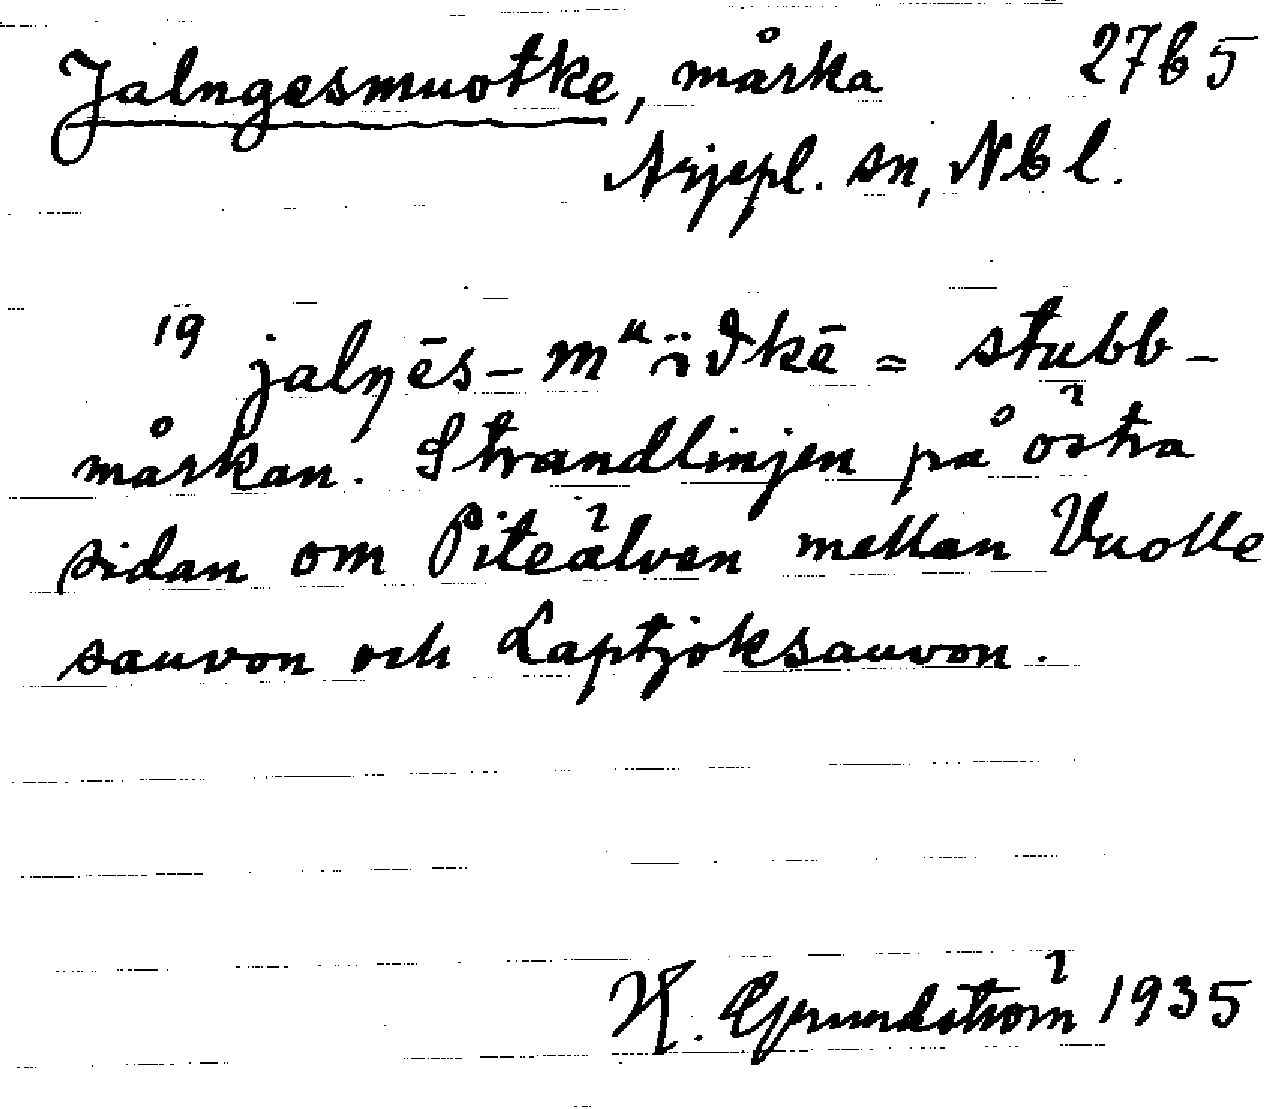 Jalngesmuotke, mårka 2765
Arjepl. sn, Nbl.
19 jalŋēs-mᵘöδkē = stubb-
mårkan. Strandlinjen på östra
sidan om Piteälven mellan Vuolle
sauvon och Laptjoksauvon.
H. Grundström 1935